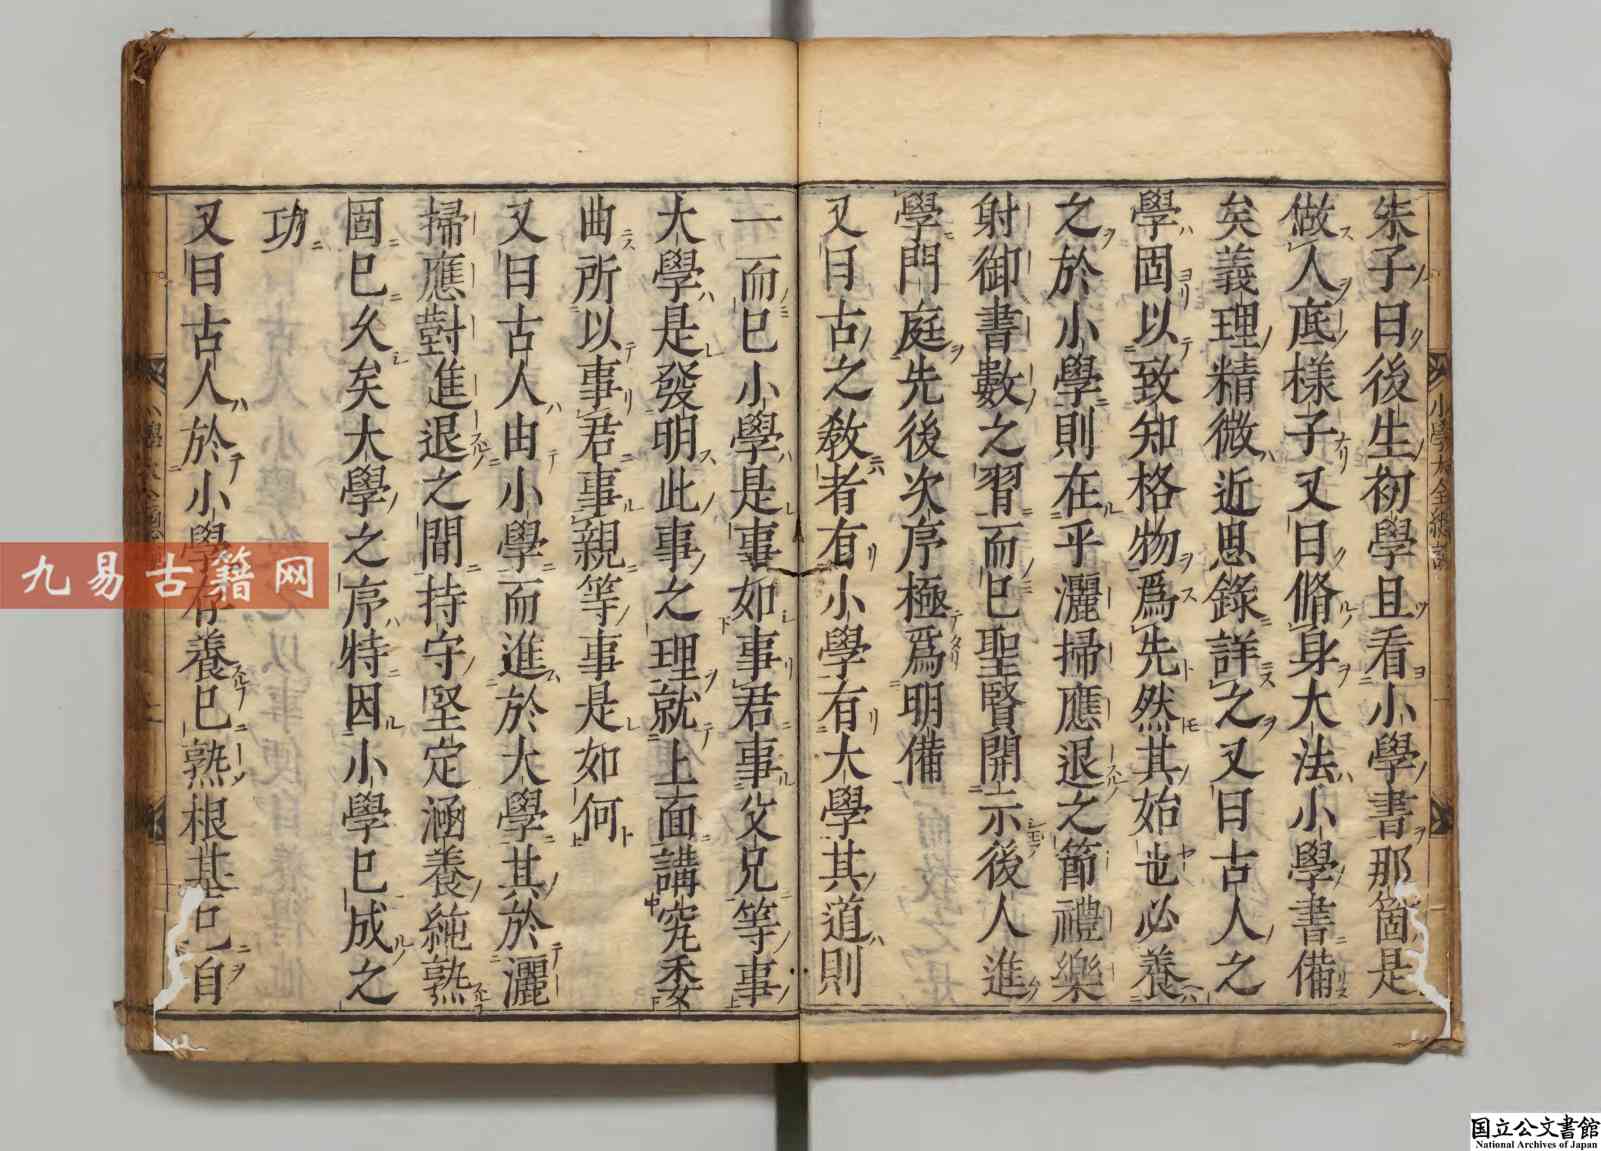 朱子曰後生初學且看小學書那箇是
做人底樣子又曰脩身大法小學書備
矣義理精微近思錄詳之又曰古人之
學固以致知格物爲先然其始也必養
之於小學則在乎灑掃應退之節禮樂
射御書數之習而已聖賢開示後人進
學門庭先後次序極爲明備
又曰古之敎者有小學有大學其道則
一而已小學是事如事君事父兄等事
大學是發明此事之理就上面講究委
曲所以事君事親等事是如何
又曰古人由小學而進於大學其於灑
掃應對進退之間持守堅定涵養純熟
固已久矣大學之序特因小學已成之
功
又曰古人於小學存養已熟根基已自
小學大全總論
九易古籍网
国立公文書館
National Archives of Japan